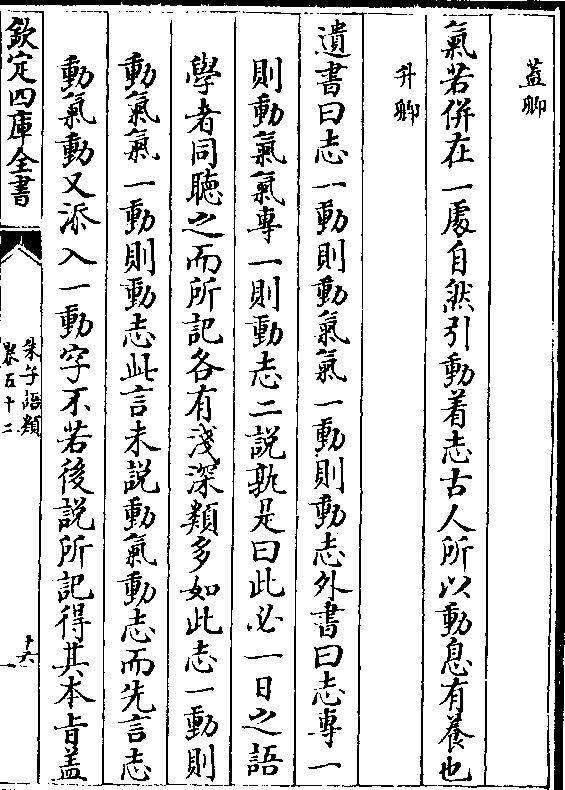 蓋卿
氣若併在一處自然引動着志古人所以動息有養也
升卿
遺書曰志一動則動氣氣一動則動志外書曰志專一
則動氣氣專一則動志二說孰是曰此必一日之語
學者同聽之而所記各有淺深類多如此志一動則
動氣氣一動則動志此言未說動氣動志而先言志
動氣動又添入一動字不若後說所記得其本旨盖
欽定四庫全書
朱子語類
卷五十二
十六